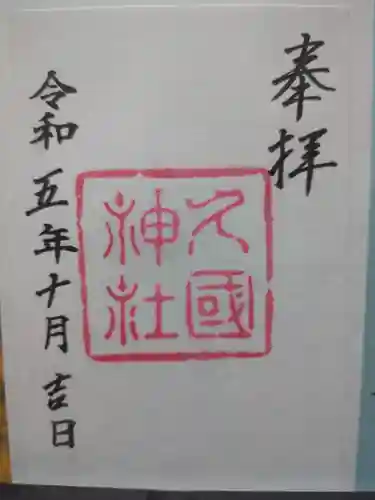 奉拝
久國神社
令和五年十月吉日